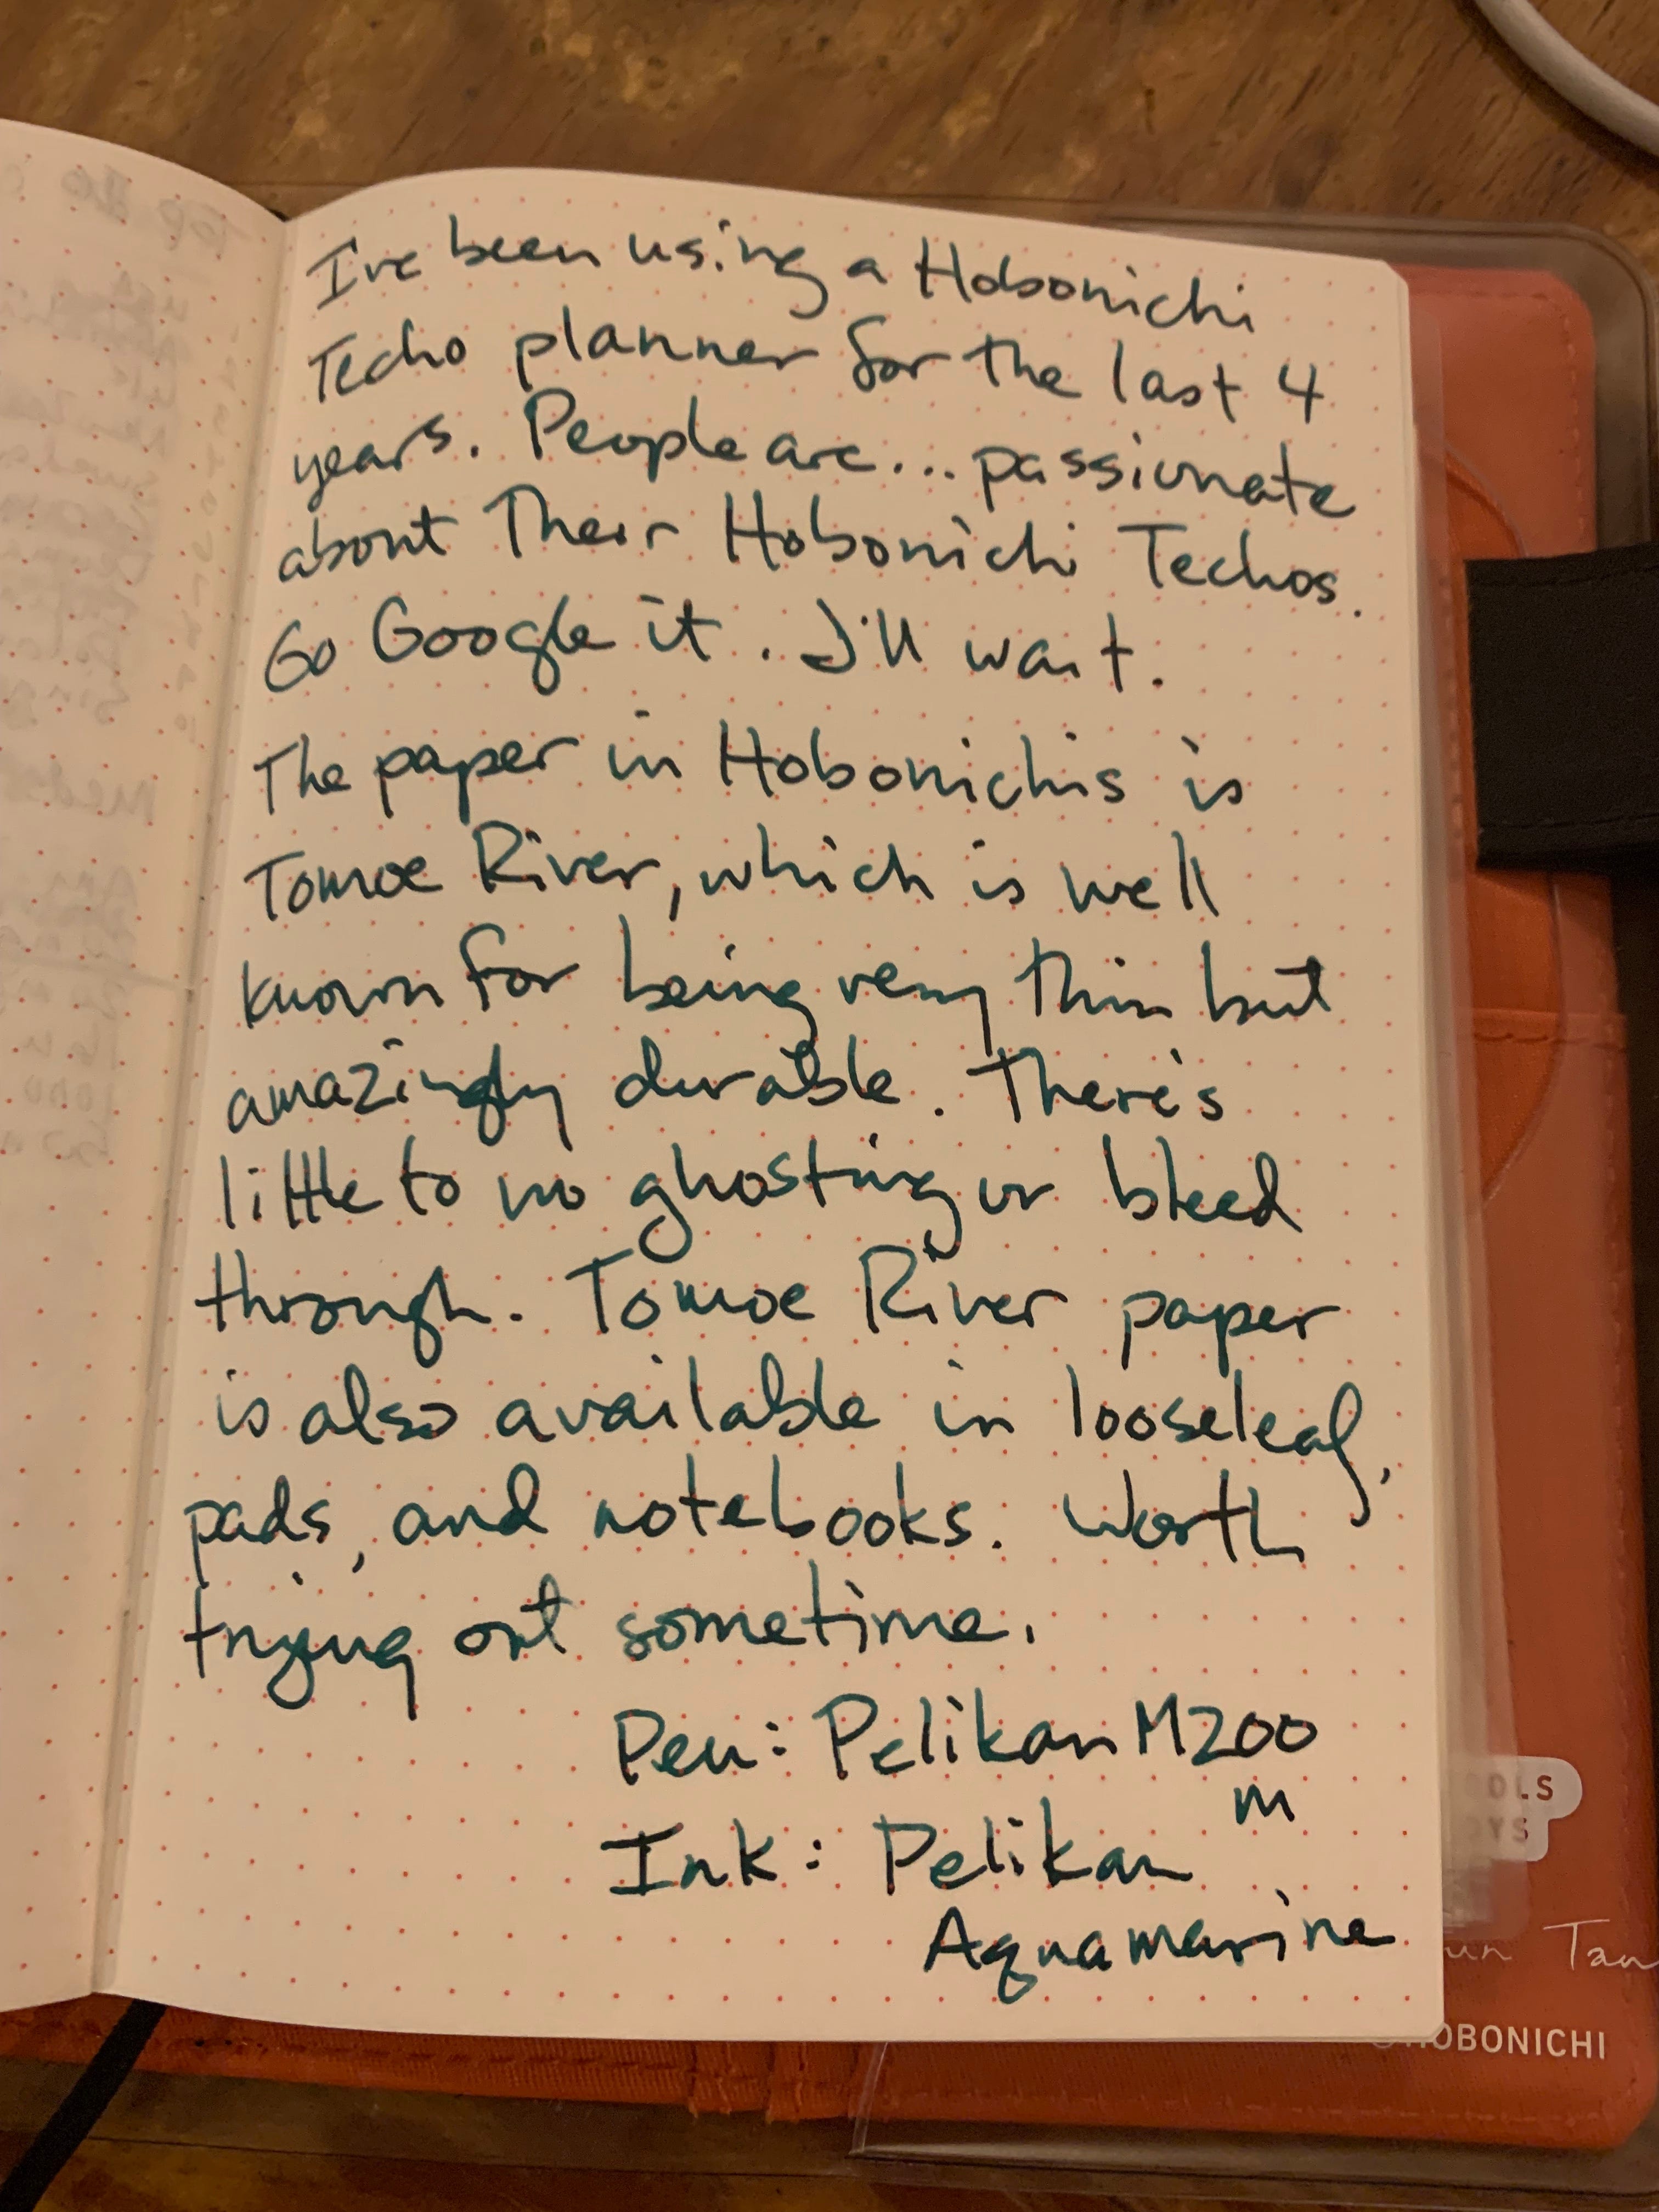 I've been using a Hobonichi
Techo planner for the last 4
years. People are... passionate
about their Hobonichi Techos.
Go Google it. I'll wait.
The paper in Hobonichis is
Tomoe River, which is well
known for being very thin but
amazingly durable. There's
little to no ghosting or bleed
through. Tomoe River paper
is also available in looseleaf,
pads, and notebooks. Worth
trying out sometime.
Pen: Pelikan M200
M
Ink: Pelikan
Aquamarine
OLS
OYS
un Tan
HOBONICHI